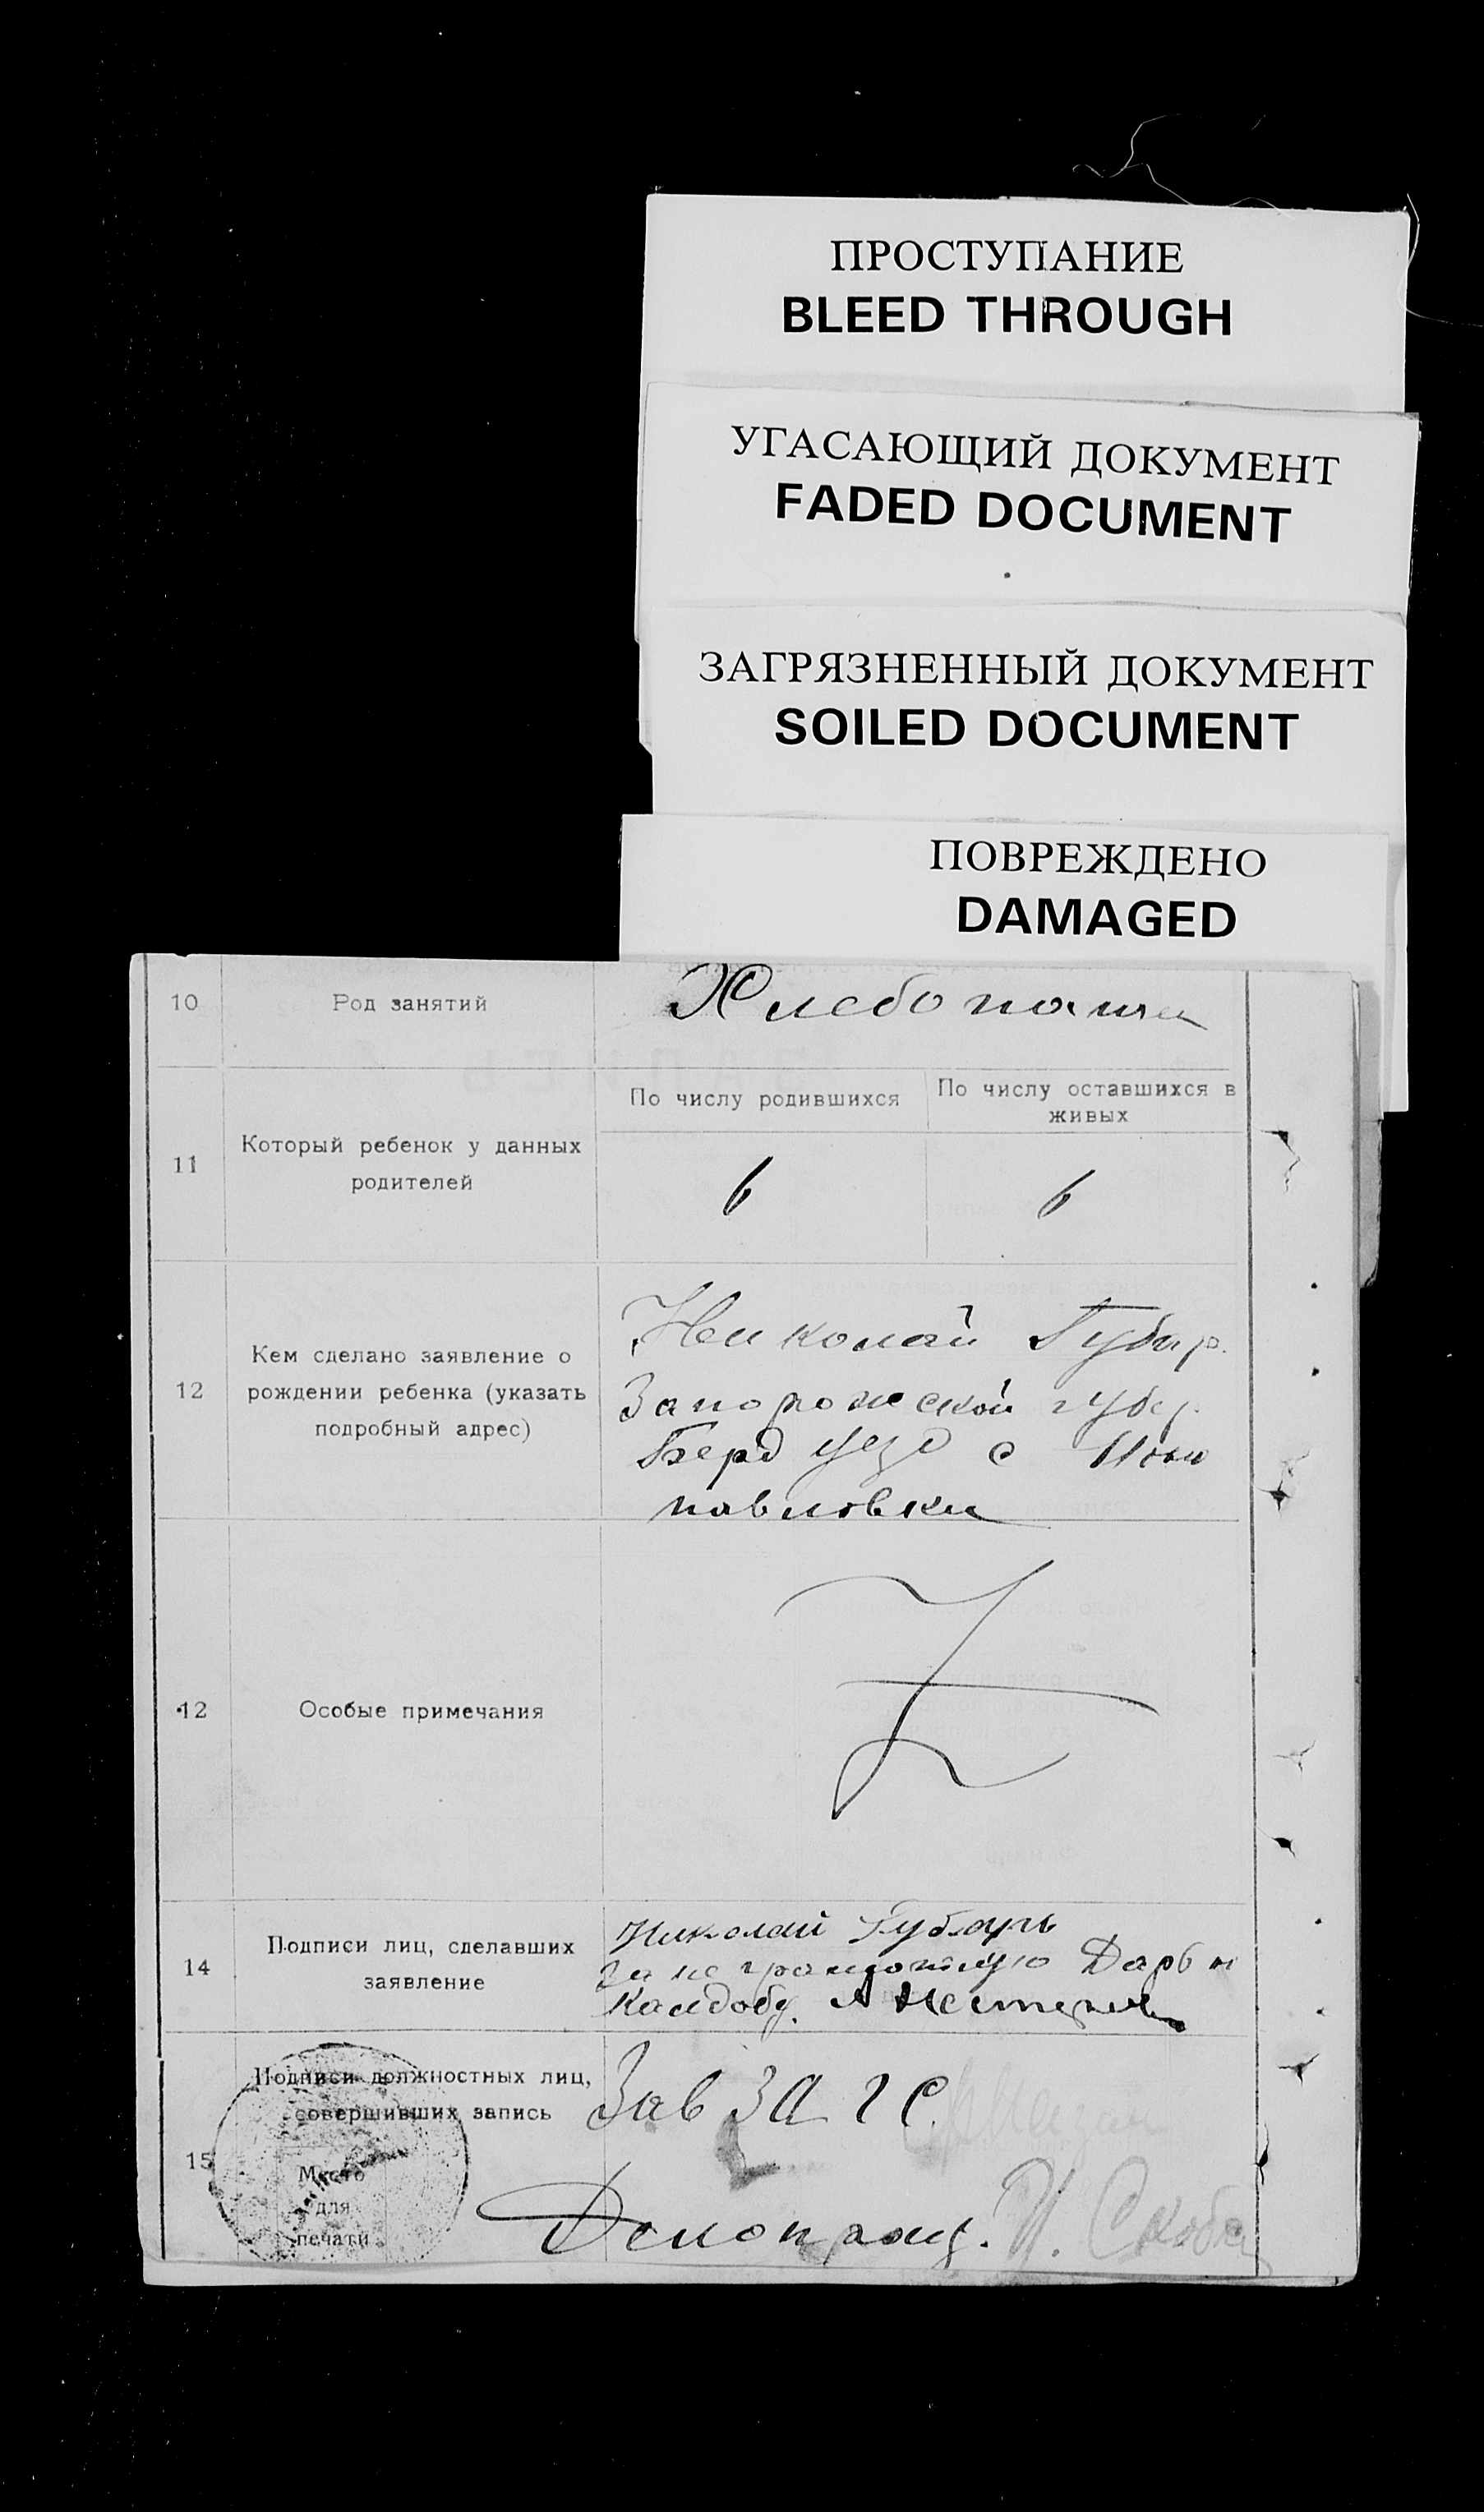 ПРОСТУПАНИЕ
BLEED THROUGH
УГАСАЮЩИЙ ДОКУМЕНТ
FADED DOCUMENT
ЗАГРЯЗНЕННЫЙ ДОКУМЕНТ
SOILED DOCUMENT
ПОВРЕЖДЕНО
DAMAGED
10
Род занятий
Хлебопаш
11
Который ребенок у данных
родителей
По числу родившихся
6
По числу оставшихся в
живых
6
12
Кем сделано заявление о
рождении ребенка (указать
подробный адрес)
Николай
Запорожской губер.
Берд уезд с Ново
павловки
12
Особые примечания
14
Подписи лиц, сделавших
заявление
Николай
За неграмотную Дарью
А
15
Подписи должностных лиц,
совершивших запись
Место
для
печати
Зав ЗАГС
Делопроиз.